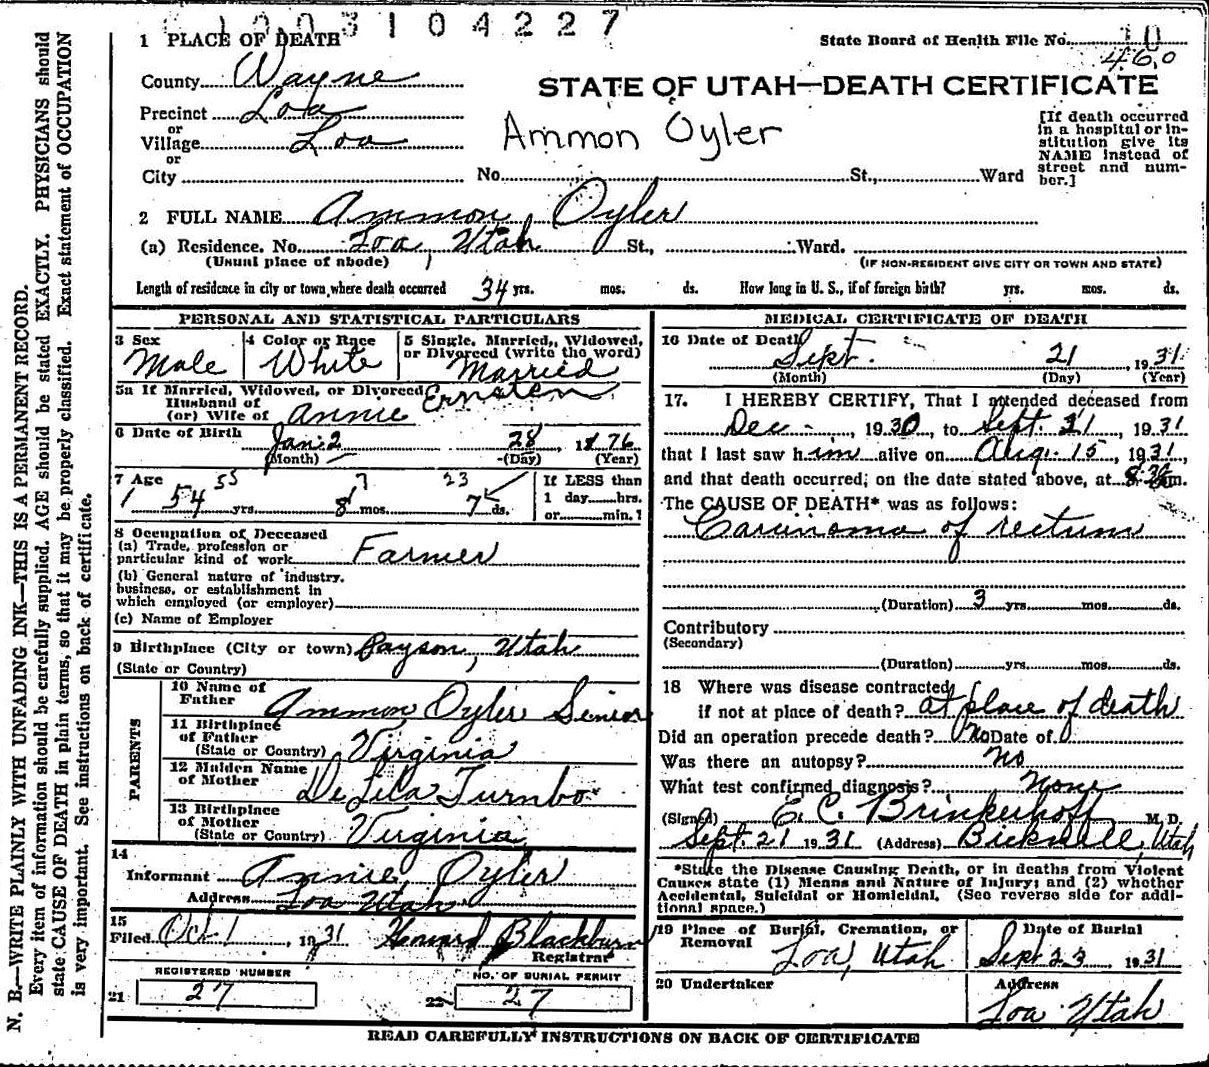 1003104227
1 PLACE OF DEATH
State Board of Health File No. 10
460
County Wayne
STATE OF UTAH—DEATH CERTIFICATE
Precinct Loa
or
Village Loa
or
City
Ammon Oyler
No. St., Ward
[If death occurred
in a hospital or in-
stitution give its
NAME instead of
street and num-
ber.]
2 FULL NAME Ammon Oyler
(a) Residence. No. Loa, Utah St., Ward.
(Usual place of abode) (IF NON-RESIDENT GIVE CITY OR TOWN AND STATE)
Length of residence in city or town where death occurred 34 yrs. mos. ds. How long in U. S., if of foreign birth? yrs. mos. ds.
PERSONAL AND STATISTICAL PARTICULARS
3 Sex Male
4 Color or Race White
5 Single, Married, Widowed,
or Divorced (write the word)
Married
5a If Married, Widowed, or Divorced
Husband of
(or) Wife of Annie Ernsten
6 Date of Birth Jan. 2 28 1876
(Month) (Day) (Year)
7 Age 55 7 23
54 yrs. 8 mos. 7 ds.
If LESS than
1 day......hrs.
or......min.?
8 Occupation of Deceased
(a) Trade, profession or
particular kind of work Farmer
(b) General nature of industry,
business, or establishment in
which employed (or employer)
(c) Name of Employer
9 Birthplace (City or town) Payson, Utah
(State or Country)
PARENTS
10 Name of
Father Ammon Oyler Senior
11 Birthplace
of Father
(State or Country) Virginia
12 Maiden Name
of Mother DeLila Turnbo
13 Birthplace
of Mother
(State or Country) Virginia
14
Informant Annie Oyler
Address Loa Utah
15
Filed Oct 1, 1931 Howard Blackburn
Registrar
REGISTERED NUMBER
21 27
NO. OF BURIAL PERMIT
22 27
MEDICAL CERTIFICATE OF DEATH
16 Date of Death
Sept. 21 1931
(Month) (Day) (Year)
17. I HEREBY CERTIFY, That I attended deceased from
Dec - , 1930, to Sept. 21, 1931
that I last saw him alive on Aug. 15, 1931,
and that death occurred, on the date stated above, at m.
The CAUSE OF DEATH* was as follows:
Carcinoma of rectum
(Duration) 3 yrs. mos. ds.
Contributory
(Secondary)
(Duration) yrs. mos. ds.
18 Where was disease contracted
if not at place of death? at place of death
Did an operation precede death? No Date of
Was there an autopsy? No
What test confirmed diagnosis? None
(Signed) E. C. Brinkerhoff M. D.
Sept. 21 1931 (Address) Bicknell, Utah
*State the Disease Causing Death, or in deaths from Violent
Causes state (1) Means and Nature of Injury; and (2) whether
Accidental, Suicidal or Homicidal. (See reverse side for addi-
tional space.)
19 Place of Burial, Cremation, or
Removal
Loa, Utah
Date of Burial
Sept 23 1931
20 Undertaker
Address
Loa Utah
READ CAREFULLY INSTRUCTIONS ON BACK OF CERTIFICATE
N. B.—WRITE PLAINLY WITH UNFADING INK—THIS IS A PERMANENT RECORD.
Every item of information should be carefully supplied. AGE should be stated EXACTLY. PHYSICIANS should
state CAUSE OF DEATH in plain terms, so that it may be properly classified. Exact statement of OCCUPATION
is very important. See instructions on back of certificate.